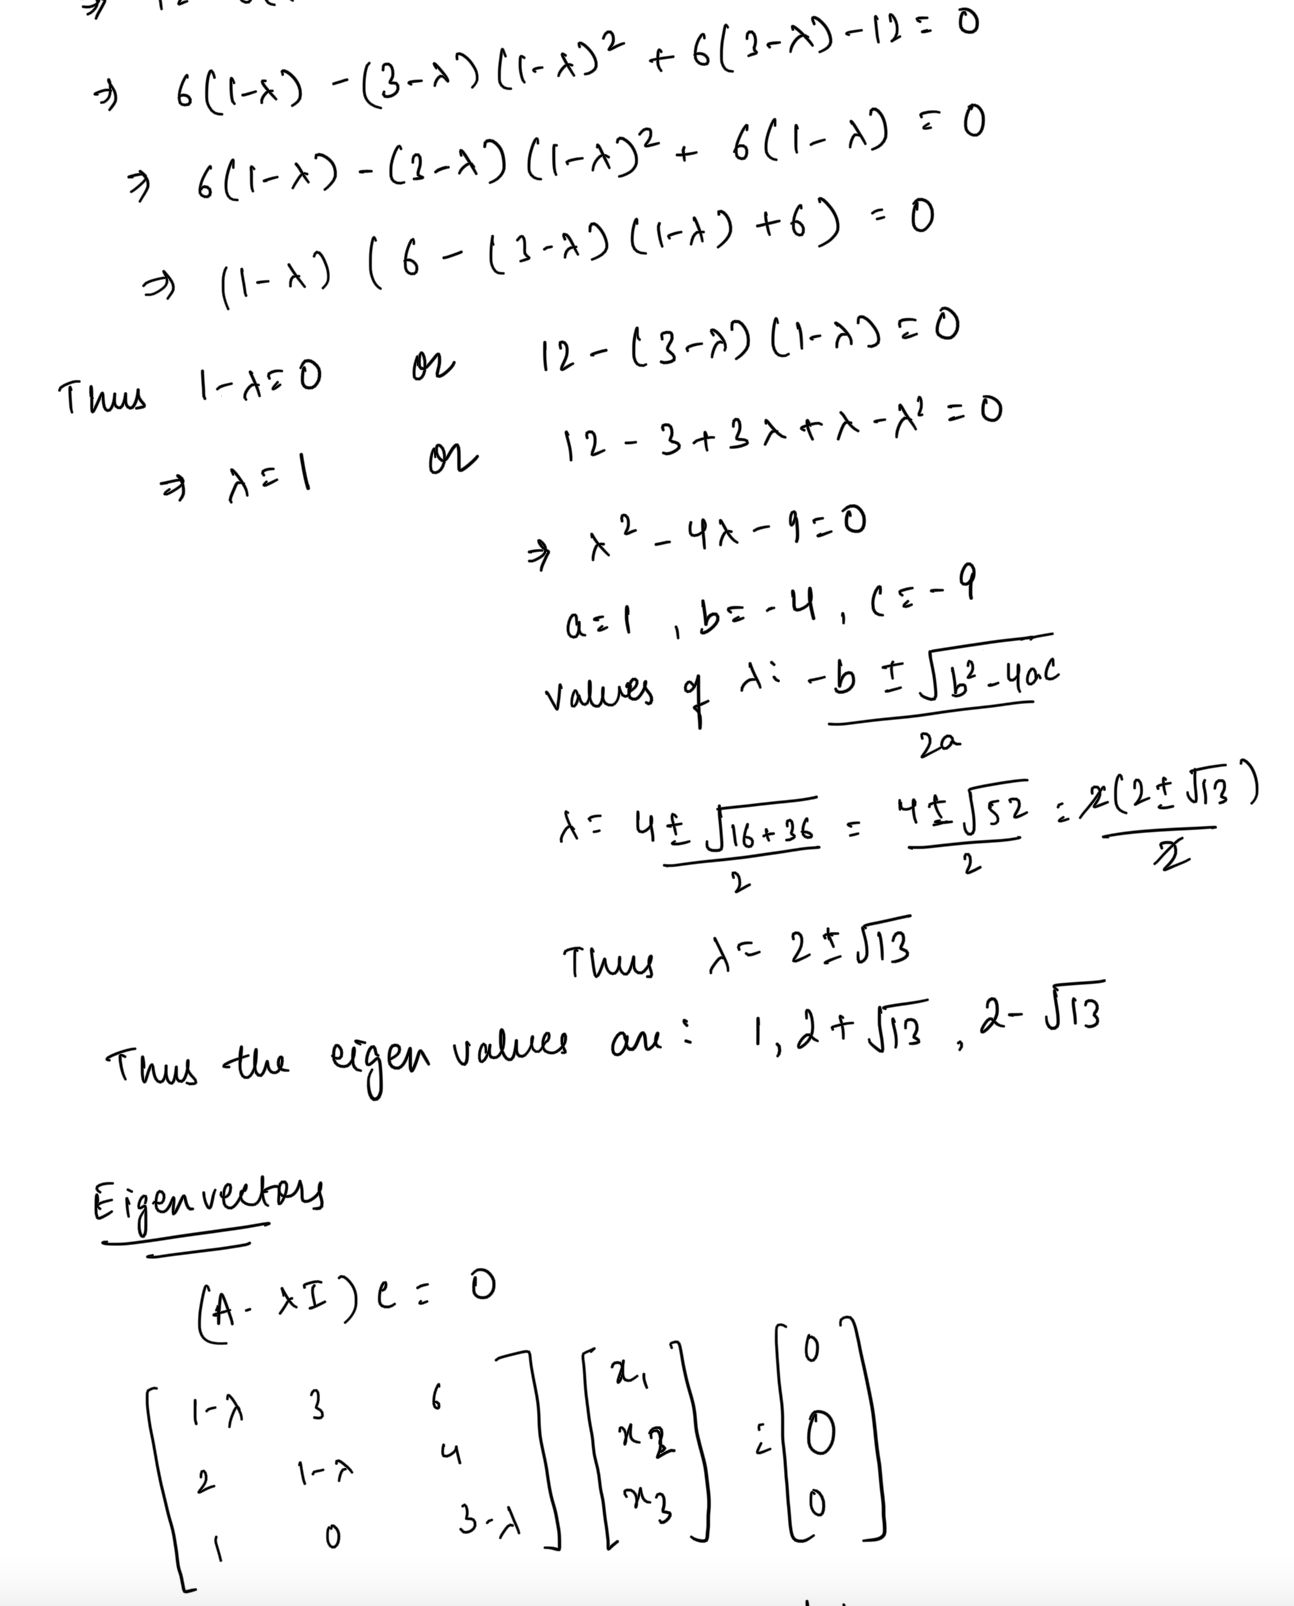 ⇒ 6(1-λ) - (3-λ)(1-λ)² + 6(3-λ) - 12 = 0
⇒ 6(1-λ) - (3-λ)(1-λ)² + 6(1-λ) = 0
⇒ (1-λ)(6 - (3-λ)(1-λ) + 6) = 0
Thus 1-λ = 0 or 12 - (3-λ)(1-λ) = 0
⇒ λ = 1 or 12 - 3 + 3λ + λ - λ² = 0
⇒ λ² - 4λ - 9 = 0
a = 1, b = -4, c = -9
values of λ: -b ± √b²-4ac
2a
λ = 4 ± √16+36 = 4 ± √52 = 2(2 ± √13)
2 2 2
Thus λ = 2 ± √13
Thus the eigen values are: 1, 2+√13, 2-√13
Eigenvectors
(A - λI) e = 0
[1-λ 3 6] [x₁] = [0]
[2 1-λ 4] [x₂] [0]
[1 0 3-λ] [x₃] [0]